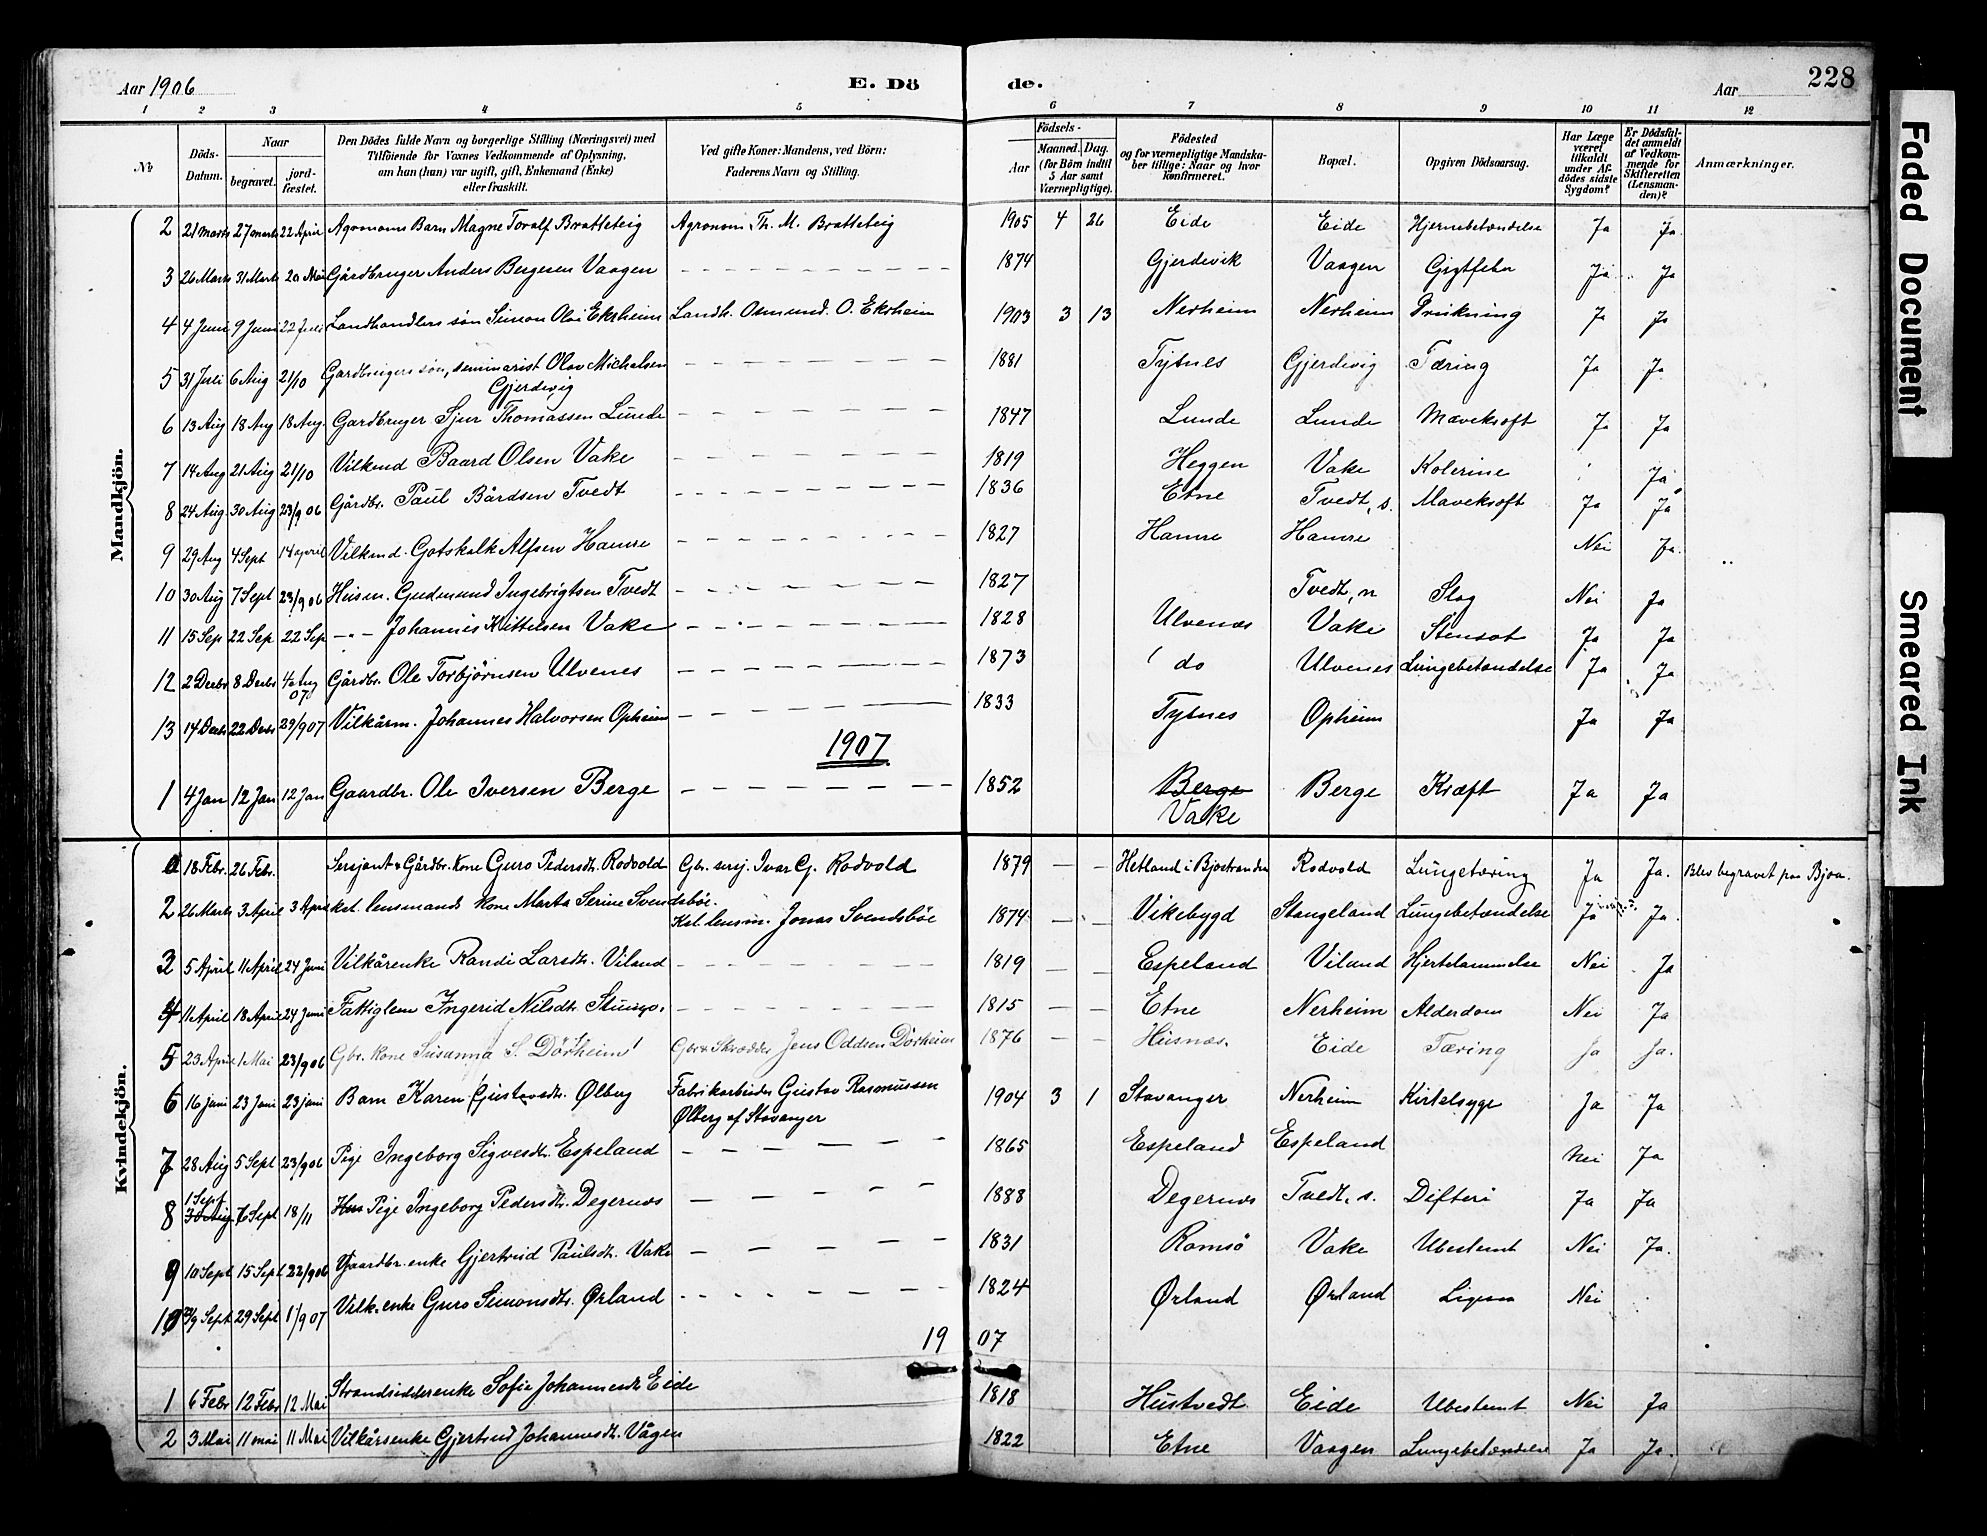 Aar 1906 E. Dö de. Aar 228
1 2 3 4 5 6 7 8 9 10 11 12
№ Döds-Datum. Naar begravet. jordfæstet. Den Dödes fulde Navn og borgerlige Stilling (Næringsvei) med Tilföiende for Voxnes Vedkommende af Oplysning, om han (hun) var ugift, gift, Enkemand (Enke) eller fraskilt. Ved gifte Koner: Mandens, ved Börn: Faderens Navn og Stilling. Födsels- Aar Maaned. Dag. (for Börn indtil 5 Aar samt Værnepligtige). Födested og for værnepligtige Mandskaber tillige: Naar og hvor Konfirmeret. Bopæl. Opgiven Dödsaarsag. Har Læge været tilkaldt under Afdödes sidste Sygdom? Er Dödsfaldet anmeldt af Vedkommende for Skifteretten (Lensmanden)? Anmærkninger.
Mandkjön.
2 21 Marts 27 Marts 22 April Agronoms Barn Magne Toralf Bratteteig Agronom Th. M. Bratteteig 1905 4 26 Eide Eide Hjernebetændelse Ja Ja.
3 26 Marts 31 Marts 20 Mai Gårdbruger Anders Bergesen Vaagen 1874 Gjerdevik Vaagen Gigtfeber Ja Ja
4 4 Juni 9 Juni 22 Juni Landhandlers søn Simon Olai Ekrheim Landh. Osmund O. Ekrheim 1903 3 13 Nerheim Nerheim Drukning Ja Ja
5 31 Juli 6 Aug 21/10 Gardbrugers søn, seminarist Olav Michalsen Gjerdevig 1881 Tytnes Gjerdevig Tæring Ja Ja
6 13 Aug 18 Aug 18 Aug. Gardbruger Sjur Thomassen Lunde 1847 Lunde Lunde Mavekræft Ja Ja
7 14 Aug 21 Aug 21/10 Vilkmd Baard Olsen Vake 1819 Heggen Vake Kolerine Ja
8 24 Aug 30 Aug 23/9 06 Gårdbr. Paul Bårdsen Tvedt 1836 Etne Tvedt, s. Mavekræft Ja Ja
9 29 Aug 4 Sept 14 april Vilkmd. Gotskalk Alfsen Hamre 1827 Hamre Hamre Nei Ja.
10 30 Aug 7 Sept 23/9 06 Husm. Gudmund Ingebrigtsen Tvedt 1827 Tvedt, n Slag Nei Ja
11 15 Sep 22 Sep 22 Sep -"- Johannes Kittelsen Vake 1828 Ulvenæs Vake Stensot Ja Ja
12 2 Decbr 8 Decbr 4/2 Aug 07 Gårdbr. Ole Torbjørnsen Ulvenes 1873 do Ulvenes Lungebetændelse Ja Ja
13 14 Decbr 22 Decbr 29/9 07 Vilkårm. Johannes Halvorsen Opheim 1833 Tytnes Opheim Ja Ja
1907
1 4 Jan 12 Jan 12 Jan Gaardbr. Ole Iversen Berge 1852 Berge Vake Berge Kræft Ja Ja
Kvindekjön.
1 18 Febr. 26 Febr. Sersjant & Gårdbr. kone Guro Pedersdt. Rodvold Gbr. sersj. Ivar G. Rodvold 1879 Hetland i Bjostranden Rodvold Lungetæring Ja Ja. Blev begravet paa Bjoa.
2 26 Marts 3 April 3 April kst. lensmands kone Marta Serine Svendsbøe. Kst. lensm. Jonas Svendsbøe 1874 Vikebygd Stangeland Lungebetændelse Ja Ja.
3 5 April 11 April 24 Juni Vilkårenke Randi Larsdt. Viland 1819 Espeland Viland Hjertelammelse Nei Ja
4 11 April 18 April 24 Juni Fattiglem Ingerid Nilsdt. 1815 Etne Nerheim Alderdom Nei Ja
5 23 April 1 Mai 23/9 06 Gbr. kone Susanna S. Dörheim Gbr & Skrædder Jens Oddsen Dörheim 1876 Husnæs. Eide Tæring Ja Ja.
6 16 juni 23 Juni 23 juni Barn Karen Gustavsdt. Ølberg Fabrikarbeider Gustav Rasmussen Ølberg af Stavanger 1904 3 1 Stavanger Nerheim Kirtelsyge Ja Ja
7 28 Aug 5 Sept 23/9 06 Pige Ingeborg Sigvesdt. Espeland 1865 Espeland Espeland Nei Ja
8 1 Sept 30 Aug 7 Sept 18/11 Hus Pige Ingeborg Pedersdt. Degernæs 1888 Degernæs Tvedt, s. Difteri Ja Ja
9 10 Sept 15 Sept 22/9 06 Gaardbr. enke Gjertrud Paulsdt. Vake 1831 Romsö Vake Ubestemt Nei Ja.
10 Sept 29 Sept 1/9 07 Vilk. enke Guro Simonsdt. Ørland 1824 Ørland Ørland Nei
1907
1 6 Febr 12 Febr 12 Mai Strandsidderenke Sofie Johannesdt. Eide 1818 Hustvedt Eide Ubestemt Nei Ja
2 3 Mai 11 mai 11 Mai Vilkårsenke Gjertrud Johannesdt. Vågen 1822 Etne Vaagen Lungebetændelse Ja Ja.
Faded Document
Smeared Ink